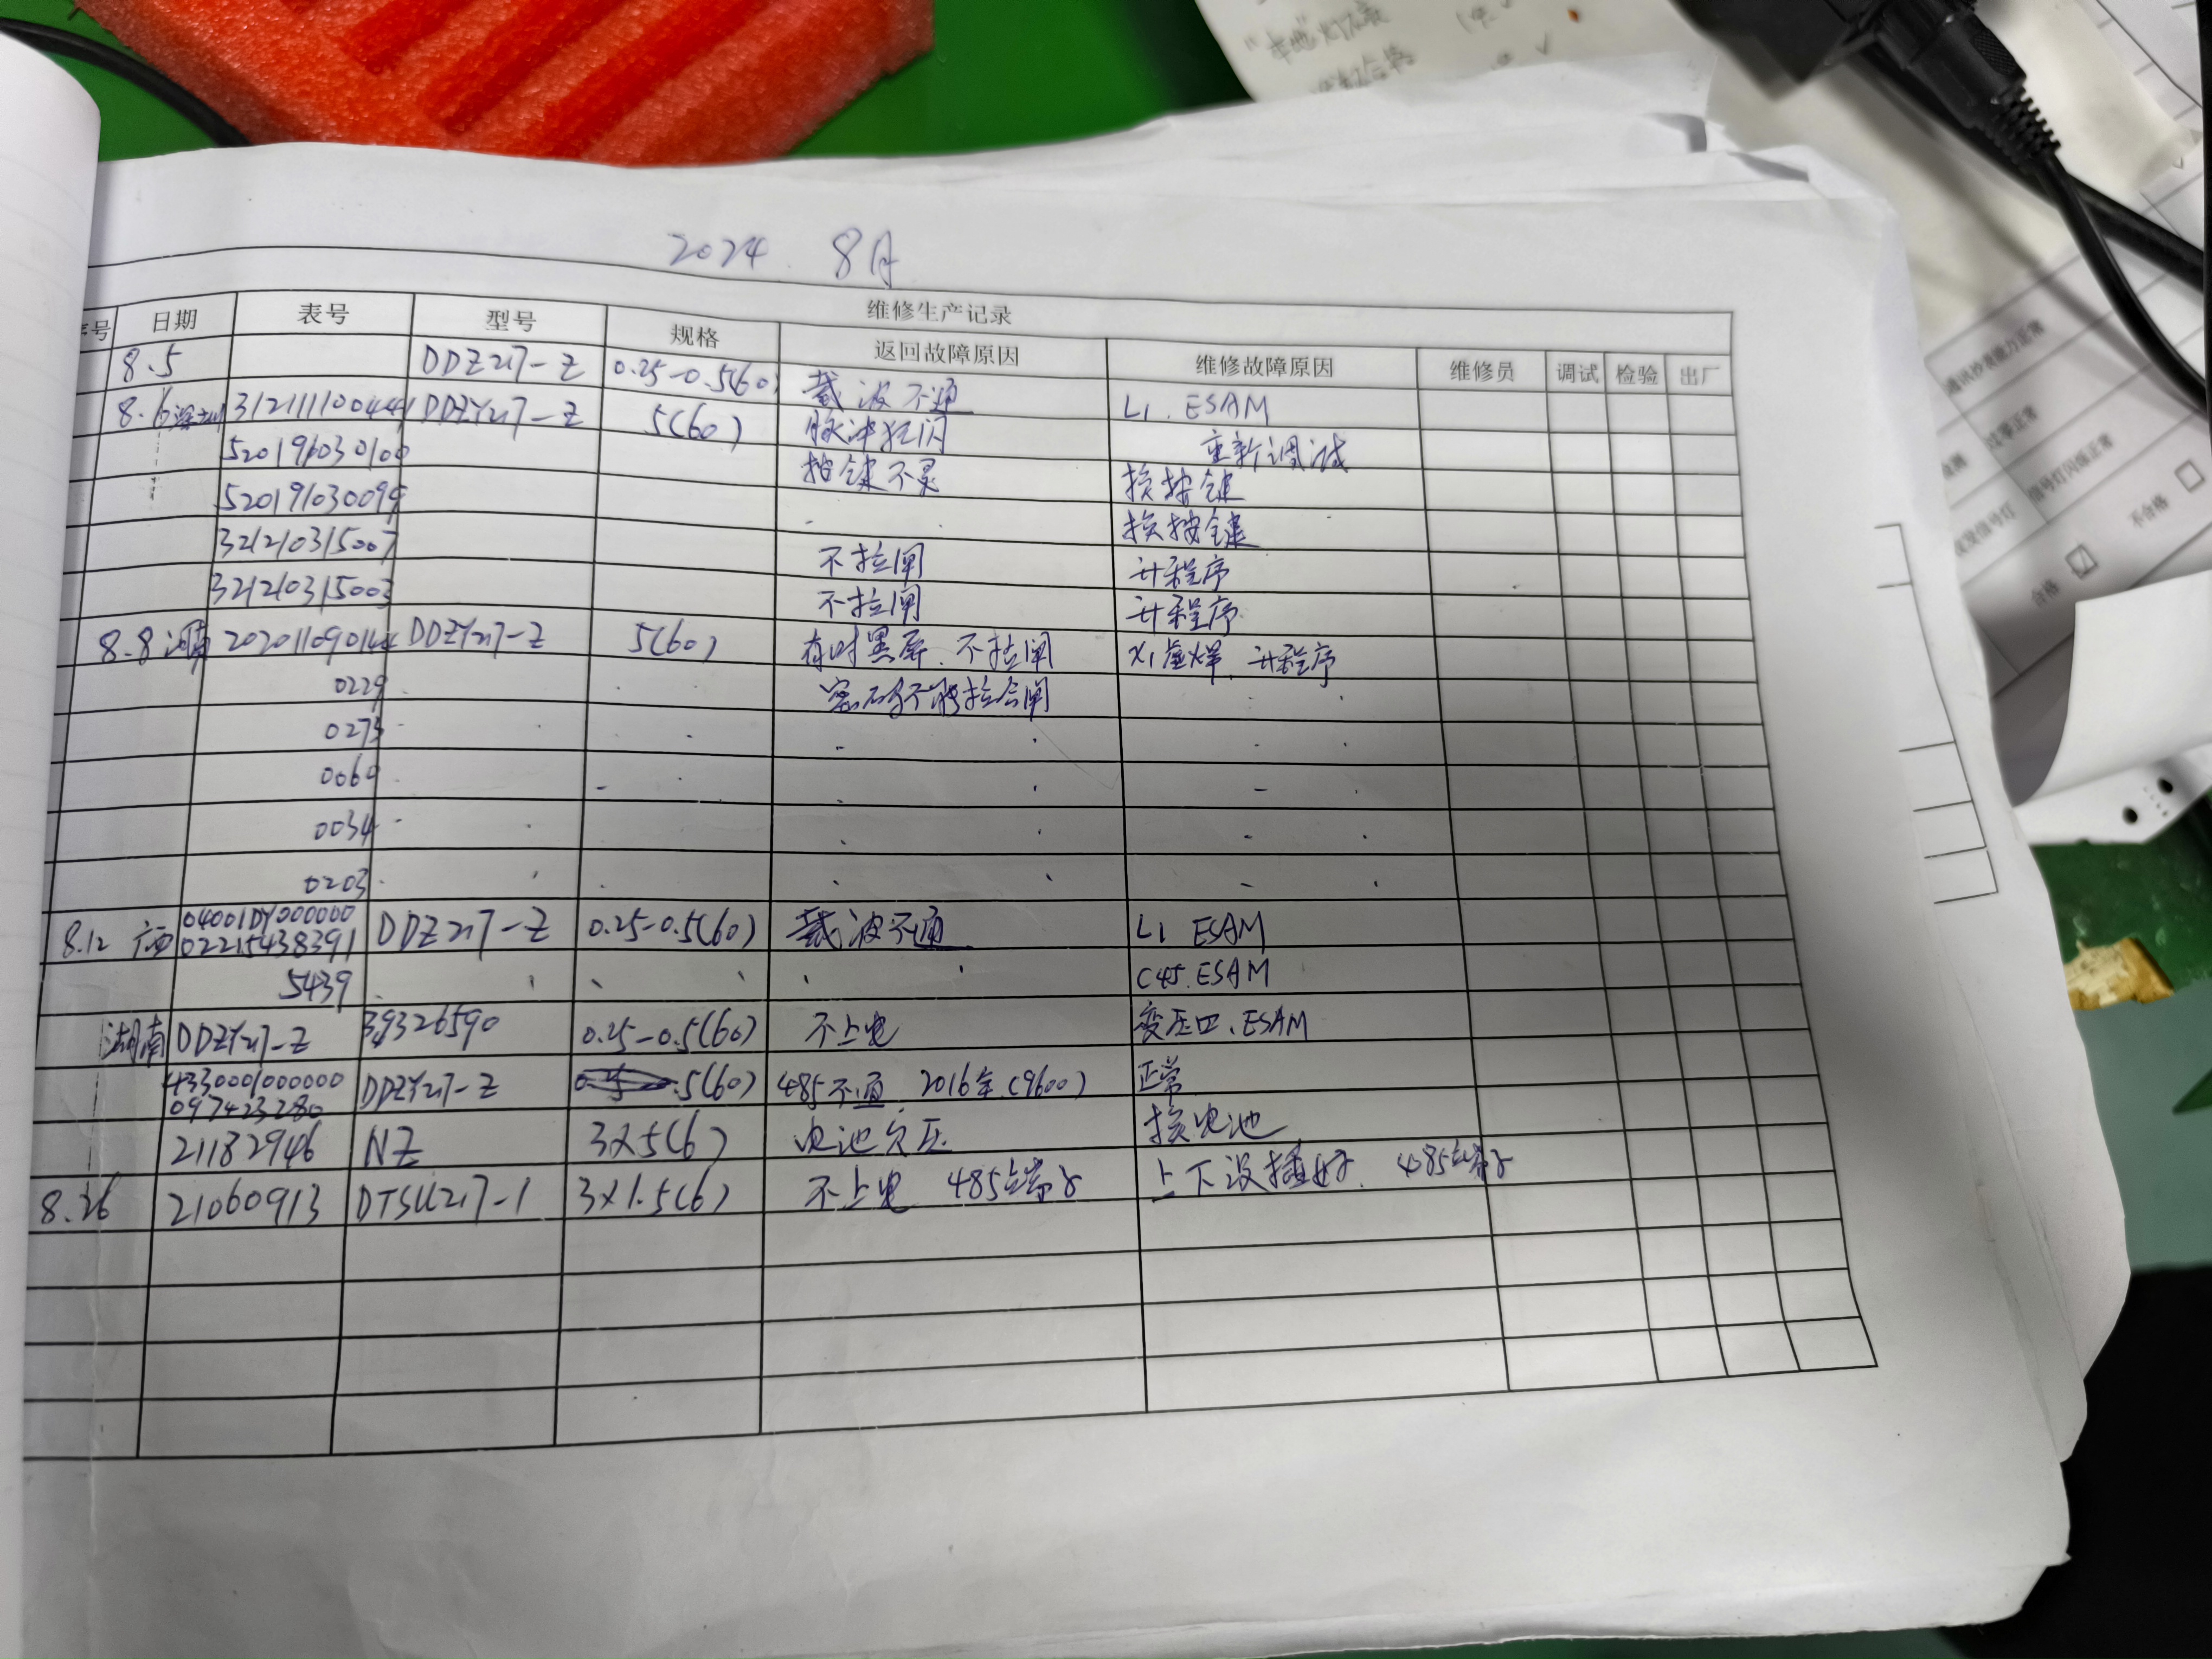 2024. 8月
维修生产记录
号 日期 表号 型号 规格 返回故障原因 维修故障原因 维修员 调试 检验 出厂
8.5 DDZ217-Z 0.25-0.5(60) 载波不通 L1. ESAM
8.6 深圳 312111100444 DDZY217-Z 5(60) 脉冲狂闪 重新调试
520196030100 按键不灵 换按键
520191030099 换按键
321210315007 不拉闸 升程序
321210315003 不拉闸 升程序
8.8 河南 202011090144 DDZY217-Z 5(60) 有时黑屏、不拉闸 X1虚焊、升程序
0229 密码不能拉合闸
0273
0060
0034
0203
8.12 广西 04001DY000000 DDZ217-Z 0.25-0.5(60) 载波不通 L1 ESAM
02215438391
5439 C45.ESAM
湖南 DDZY217-Z 39326590 0.25-0.5(60) 不上电 ESAM
4330001000000 DDZY217-Z 5(60) 485不通、2016年(9600) 正常
097423280
21182946 NZ 3×5(6) 电池欠压 换电池
8.26 21060913 DTSU217-1 3×1.5(6) 不上电 485端子 上下没插好、485端子
通讯抄表能力正常
信号灯闪烁正常
不合格
合格